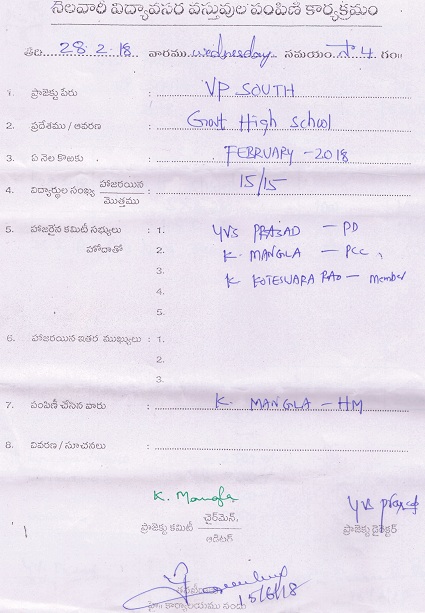 నెలవారీ విద్యావసర వస్తువుల పంపిణీ కార్యక్రమం
తేది 28.2.18 వారము Wednesday సమయం సా 4 గం॥
1. ప్రాజెక్టు పేరు : VP SOUTH
2. ప్రదేశము / ఆవరణ : Govt High School
3. ఏ నెల కొఱకు : FEBRUARY - 2018
4. విద్యార్థుల సంఖ్య హాజరయిన / మొత్తము : 15/15
5. హాజరైన కమిటీ సభ్యులు : 1. YVS PRASAD - PD
హోదాతో 2. K. MANGLA - PCC
3. K KOTESWARA RAO - Member
4.
5.
6. హాజరయిన ఇతర ముఖ్యులు : 1.
2.
3.
7. పంపిణీ చేసిన వారు : K. MANGLA - HM
8. వివరణ / సూచనలు :
K. Mangla
YVS Prasad
ప్రాజెక్టు కమిటీ చైర్‌మెన్, / ఆడిటర్
ప్రాజెక్టు డైరెక్టర్
15/6/18
కార్యాలయము నందు